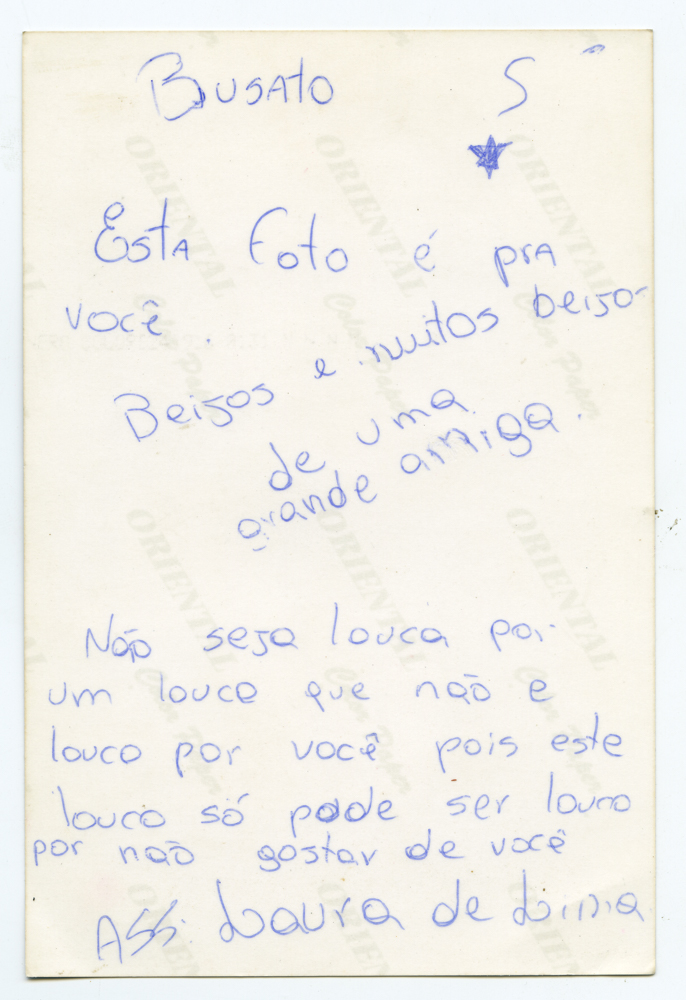 Busato S
Esta foto é pra
você.
Beijos e muitos beijos
de uma
grande amiga.
Não seja louca por
um louco que não e
louco por você pois este
louco só pode ser louco
por não gostar de você
Ass: Laura de Lima
ORIENTAL
Color Paper